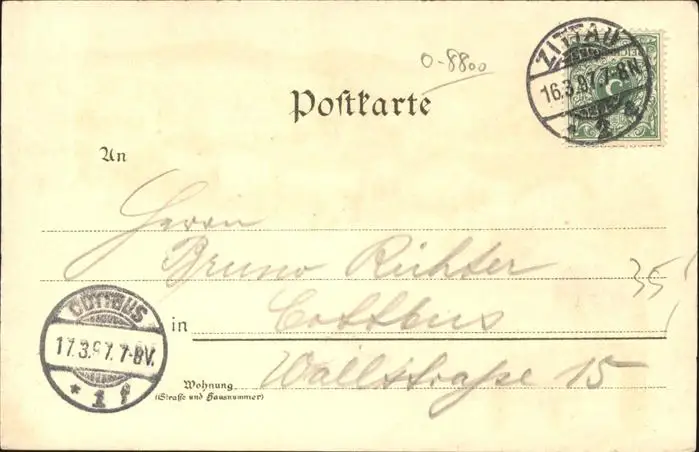 0-8800
ZITTAU
16.3.97.7-8N.
* 1 g
Postkarte
An
Herrn
Bruno Richter
35
in Cottbus
Wallstraße 15
Wohnung
(Straße und Hausnummer)
COTTBUS
17.3.97.7-8V.
* 1 f